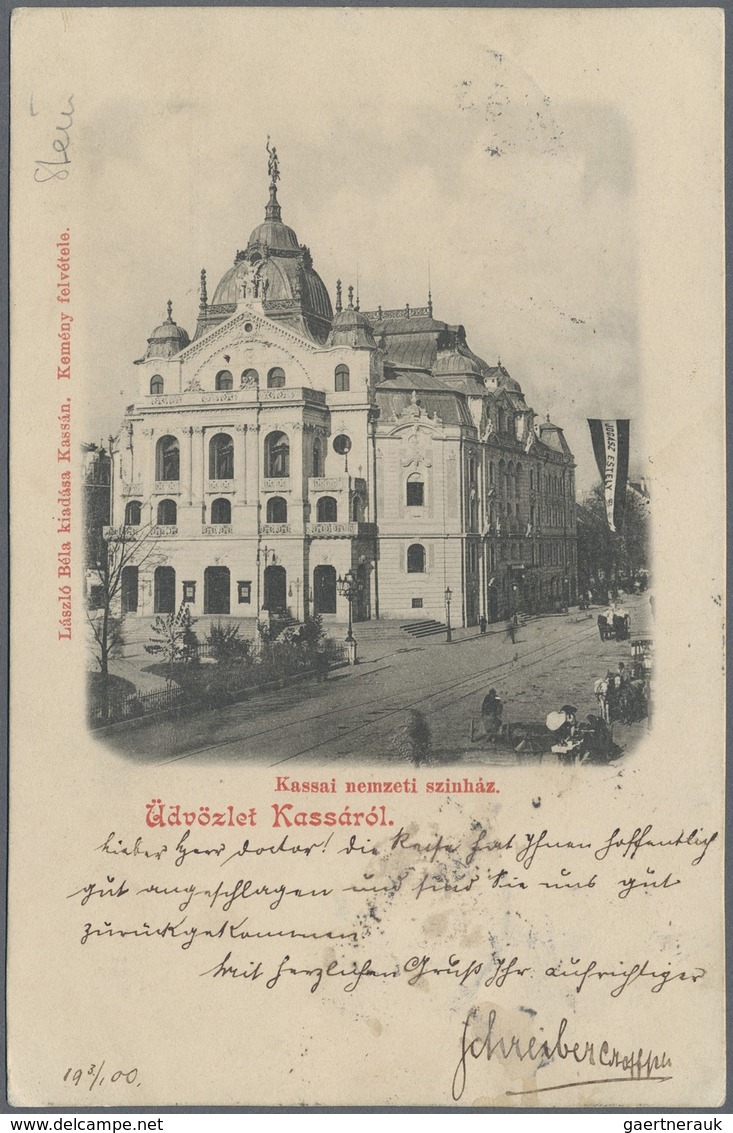 Stein
László Béla kiadása Kassán. Kemény felvétele.
JOGÁSZ ESTÉLY
Kassai nemzeti szinház.
Üdvözlet Kassáról.
Lieber Herr Doctor! die Reise hat Ihnen hoffentlich
gut angeschlagen und sind Sie uns gut
zurückgekommen
Mit herzlichen Gruß Ihr aufrichtiger
Schreiber
19 3/100.
gaertnerauk